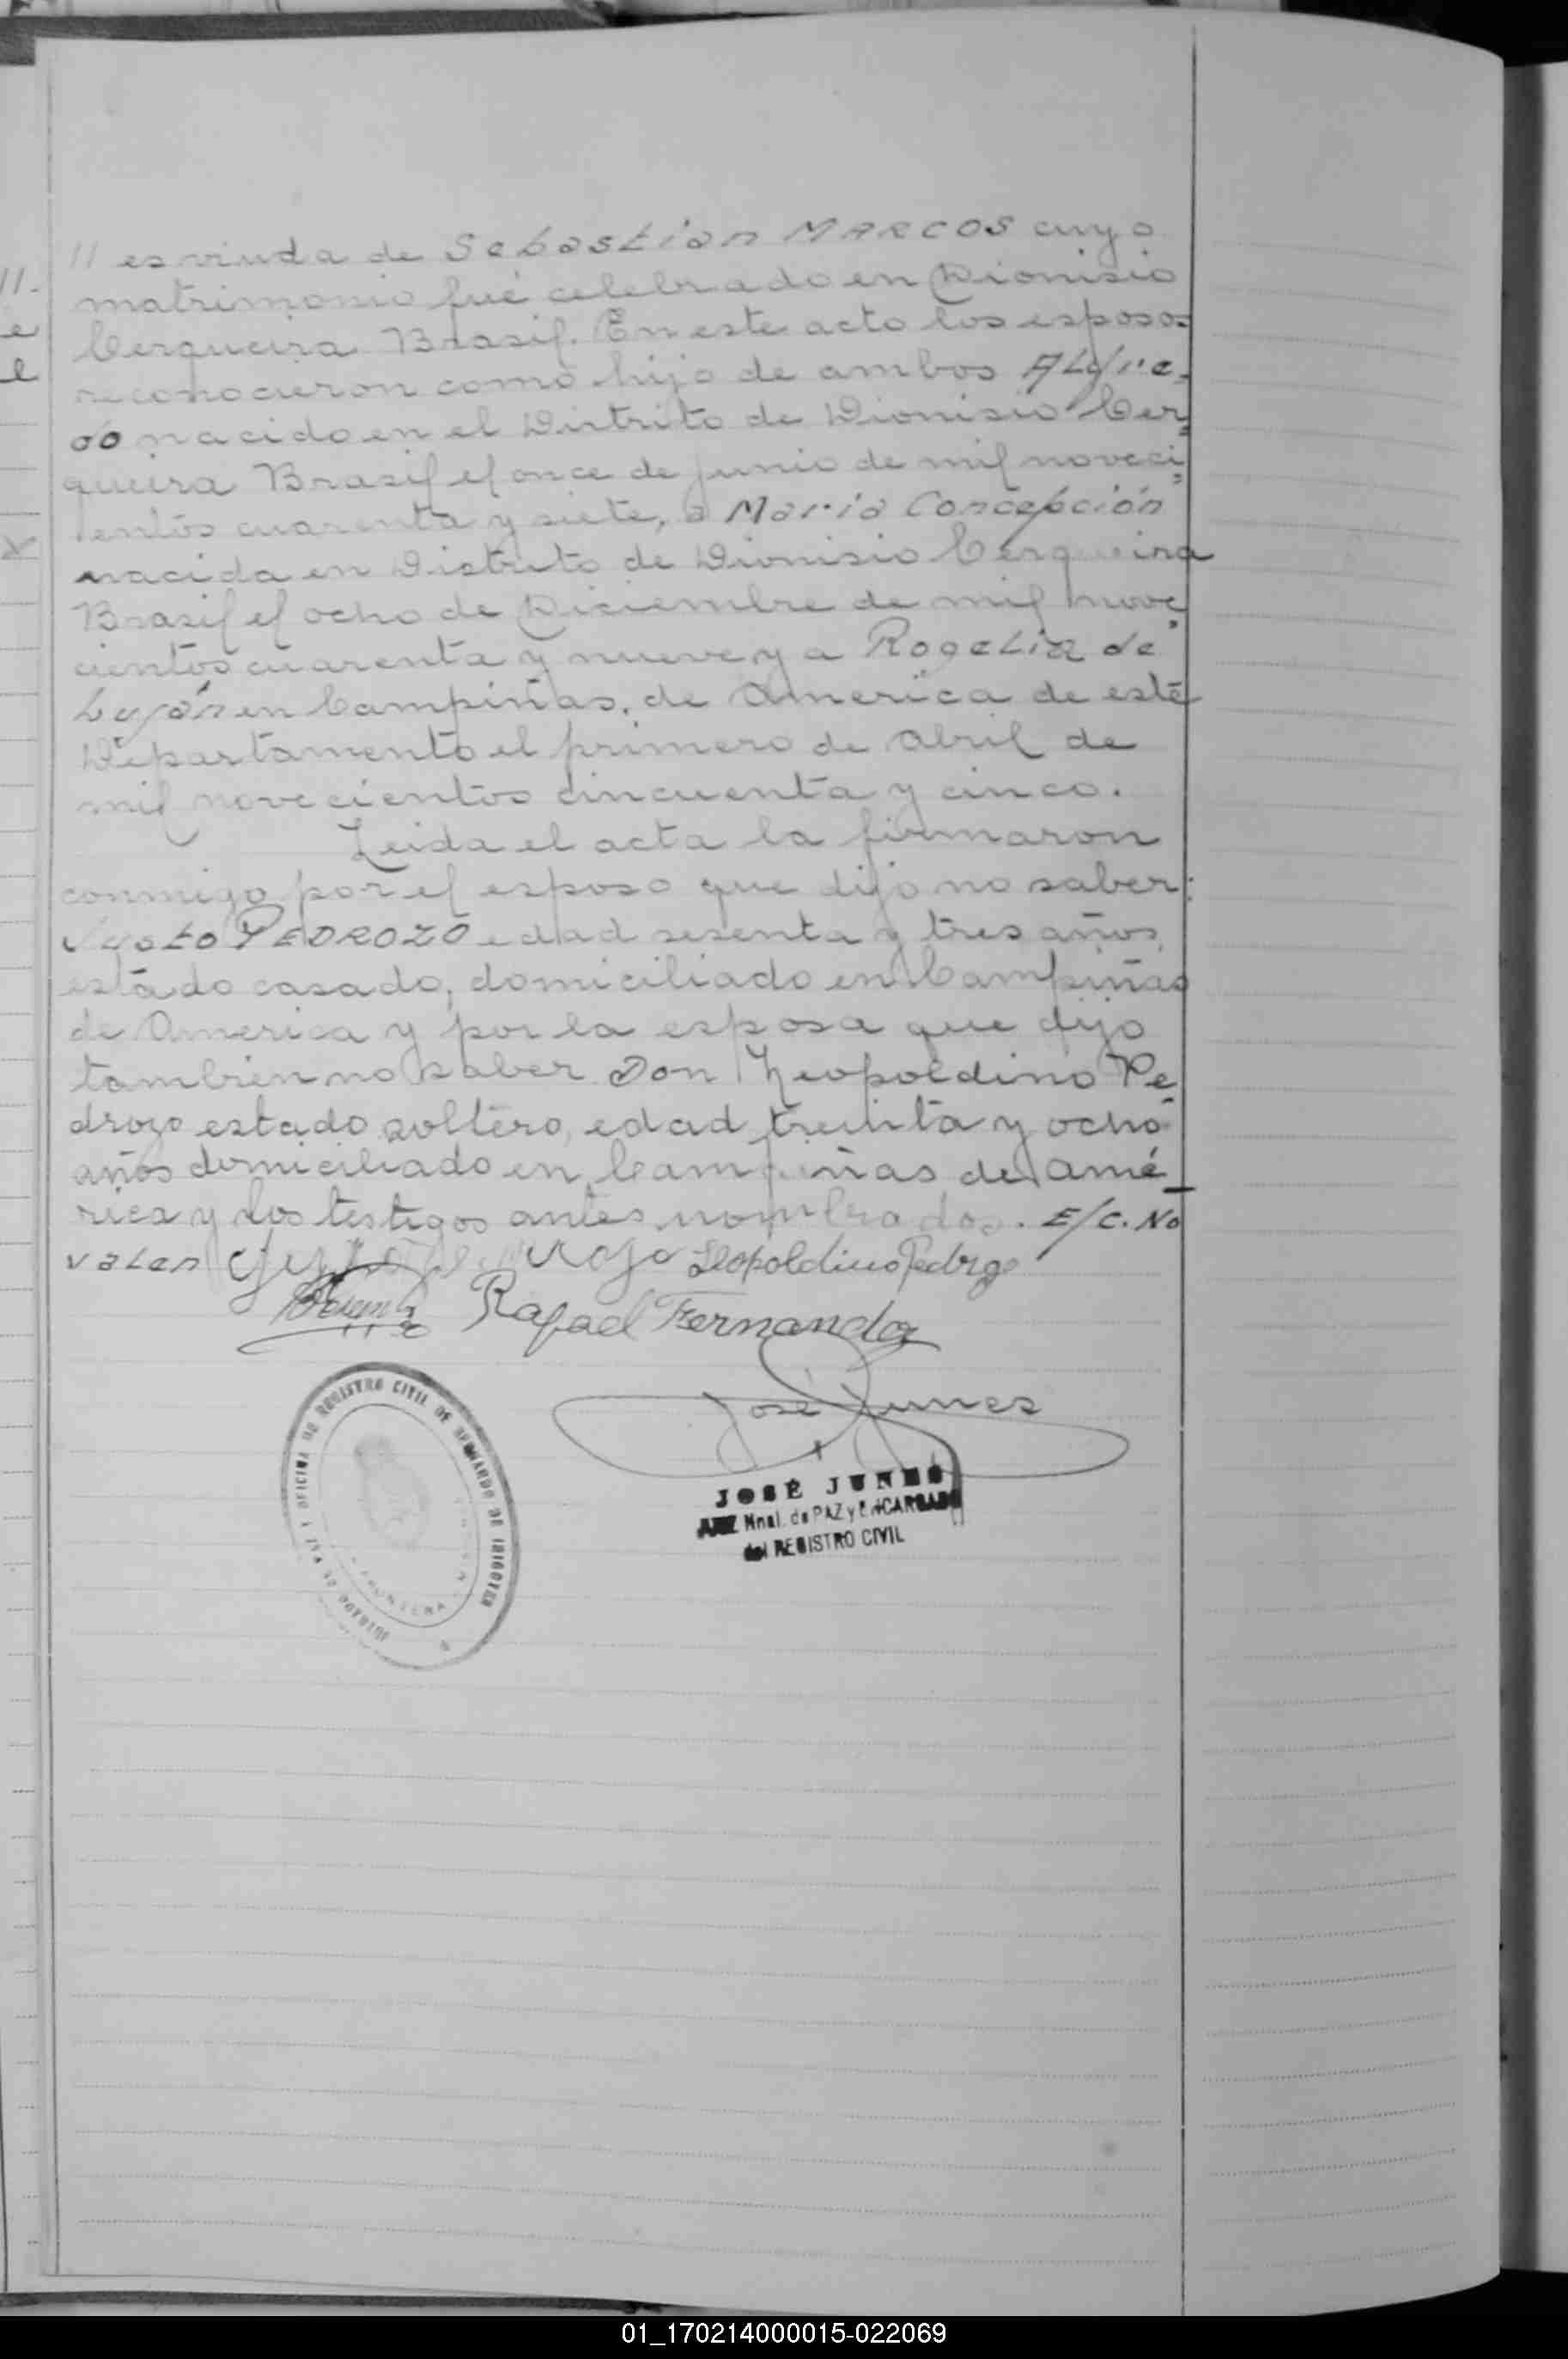 // es viuda de Sebastian MARCOS cuyo
matrimonio fué celebrado en Dionisio
Cerqueira Brasil. En este acto los esposos
reconocieron como hijo de ambos Alfre-
do nacido en el Distrito de Dionisio Cer-
queira Brasil el once de junio de mil noveci-
entos cuarenta y siete, a Maria Concepción
nacida en Distrito de Dionisio Cerqueira
Brasil el ocho de Diciembre de mil nove-
cientos cuarenta y nueve y a Rogelia de
Luján en Campiñas, de America de este
Departamento el primero de Abril de
mil novecientos cincuenta y cinco.
Leida el acta la firmaron
conmigo por el esposo que dijo no saber:
PEDROZO edad sesenta y tres años,
estado casado, domiciliado en Campiñas
de America y por la esposa que dijo
tambien no saber Don Leopoldino Pe-
drozo estado soltero, edad treinta y ocho
años domiciliado en Campiñas de Amé-
rica y los testigos antes nombrados. E/C. No
valen Leopoldino Pedrozo
Rafael Fernandez
José Junes
JOSÉ JUNES
JUEZ Nnal. de PAZ y ENCARGADO
del REGISTRO CIVIL
JUZGADO DE PAZ Y OFICINA DE REGISTRO CIVIL DE BERNARDO DE IRIGOYEN
FRONTERA
01_170214000015-022069